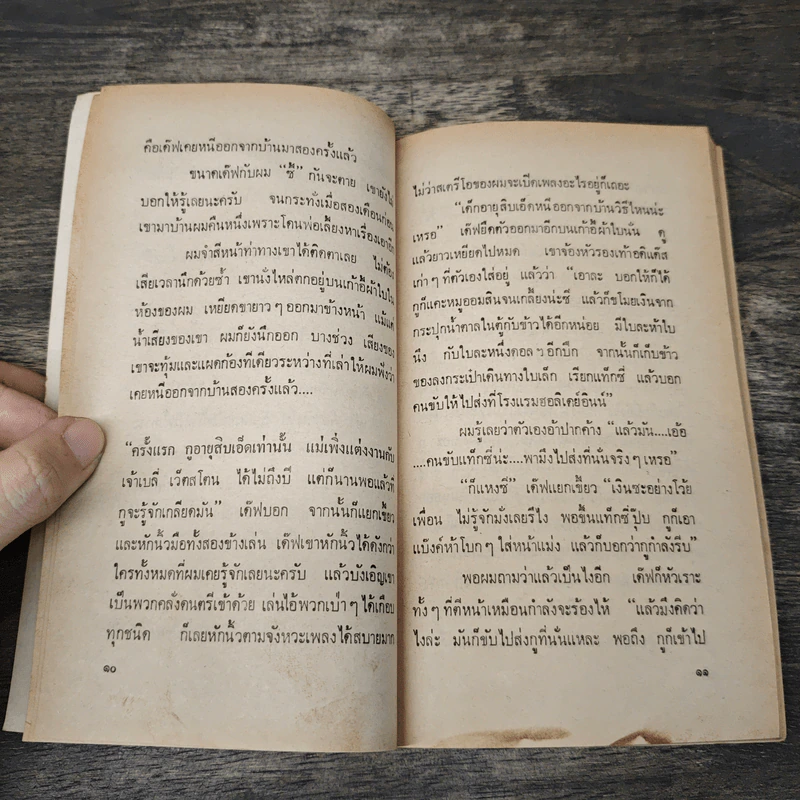 คือเด๊ฟเคยหนีออกจากบ้านมาสองครั้งแล้ว
ขนาดเด๊ฟกับผม “ซี้” กันจะตาย เขายังไม่
บอกให้รู้เลยนะครับ จนกระทั่งเมื่อสองเดือนก่อน
เขามาบ้านผมคืนหนึ่งเพราะโดนพ่อเลี้ยงหาเรื่องเอาอีก
ผมจำสีหน้าท่าทางเขาได้ติดตาเลย ไม่ต้อง
เสียเวลานึกด้วยซ้ำ เขานั่งไหล่ตกอยู่บนเก้าอี้ผ้าใบใน
ห้องของผม เหยียดขายาวๆ ออกมาข้างหน้า แม้แต่
น้ำเสียงของเขา ผมก็ยังนึกออก บางช่วง เสียงของ
เขาจะทุ้มและแผดก้องทีเดียวระหว่างที่เล่าให้ผมฟังว่า
เคยหนีออกจากบ้านสองครั้งแล้ว....
“ครั้งแรก กูอายุสิบเอ็ดเท่านั้น แม่เพิ่งแต่งงานกับ
เจ้าเบลี่ เว็ตสโตน ได้ไม่ถึงปี แต่ก็นานพอแล้วที่
กูจะรู้จักเกลียดมัน” เด๊ฟบอก จากนั้นก็แยกเขี้ยว
และหักนิ้วมือทั้งสองข้างเล่น เด๊ฟเขาหักนิ้วได้ดังกว่า
ใครทั้งหมดที่ผมเคยรู้จักเลยนะครับ แล้วบังเอิญเขา
เป็นพวกคลั่งดนตรีเข้าด้วย เล่นไอ้พวกเป่าๆ ได้เกือบ
ทุกชนิด ก็เลยหักนิ้วตามจังหวะเพลงได้สบายมาก
๑๐
ไม่ว่าสเตริโอของผมจะเปิดเพลงอะไรอยู่ก็เถอะ
“เด็กอายุสิบเอ็ดหนีออกจากบ้านวิธีไหนน่ะ
เหรอ” เด๊ฟยืดตัวออกมาอีกบนเก้าอี้ผ้าใบนั่น ดู
แล้วยาวเหยียดไปหมด เขาจ้องหัวรองเท้าอดิแด๊ส
เก่าๆ ที่ตัวเองใส่อยู่ แล้วว่า “เอาละ บอกให้ก็ได้
กูก็แคะหมูออมสินจนเกลี้ยงน่ะซี แล้วก็ขโมยเงินจาก
กระปุกน้ำตาลในตู้กับข้าวได้อีกหน่อย มีใบละห้าใบ
นึง กับใบละหนึ่งดอลฯ อีกปึก จากนั้นก็เก็บข้าว
ของลงกระเป๋าเดินทางใบเล็ก เรียกแท็กซี่ แล้วบอก
คนขับให้ไปส่งที่โรงแรมฮอลิเดย์อินน์”
ผมรู้เลยว่าตัวเองอ้าปากค้าง “แล้วมัน....เอ้อ
....คนขับแท็กซี่น่ะ....พามึงไปส่งที่นั่นจริงๆ เหรอ”
“ก็แหงซี” เด๊ฟแยกเขี้ยว “เงินซะอย่างโว้ย
เพื่อน ไม่รู้จักมั่งเลยรึไง พอขึ้นแท็กซี่ปุ๊บ กูก็เอา
แบ๊งค์ห้าโบกๆ ใส่หน้าแม่ง แล้วก็บอกว่ากูกำลังรีบ”
พอผมถามว่าแล้วเป็นไงอีก เด๊ฟก็หัวเราะ
ทั้งๆ ที่ตีหน้าเหมือนกำลังจะร้องไห้ “แล้วมึงคิดว่า
ไงล่ะ มันก็ขับไปส่งกูที่นั่นแหละ พอถึง กูก็เข้าไป
๑๑